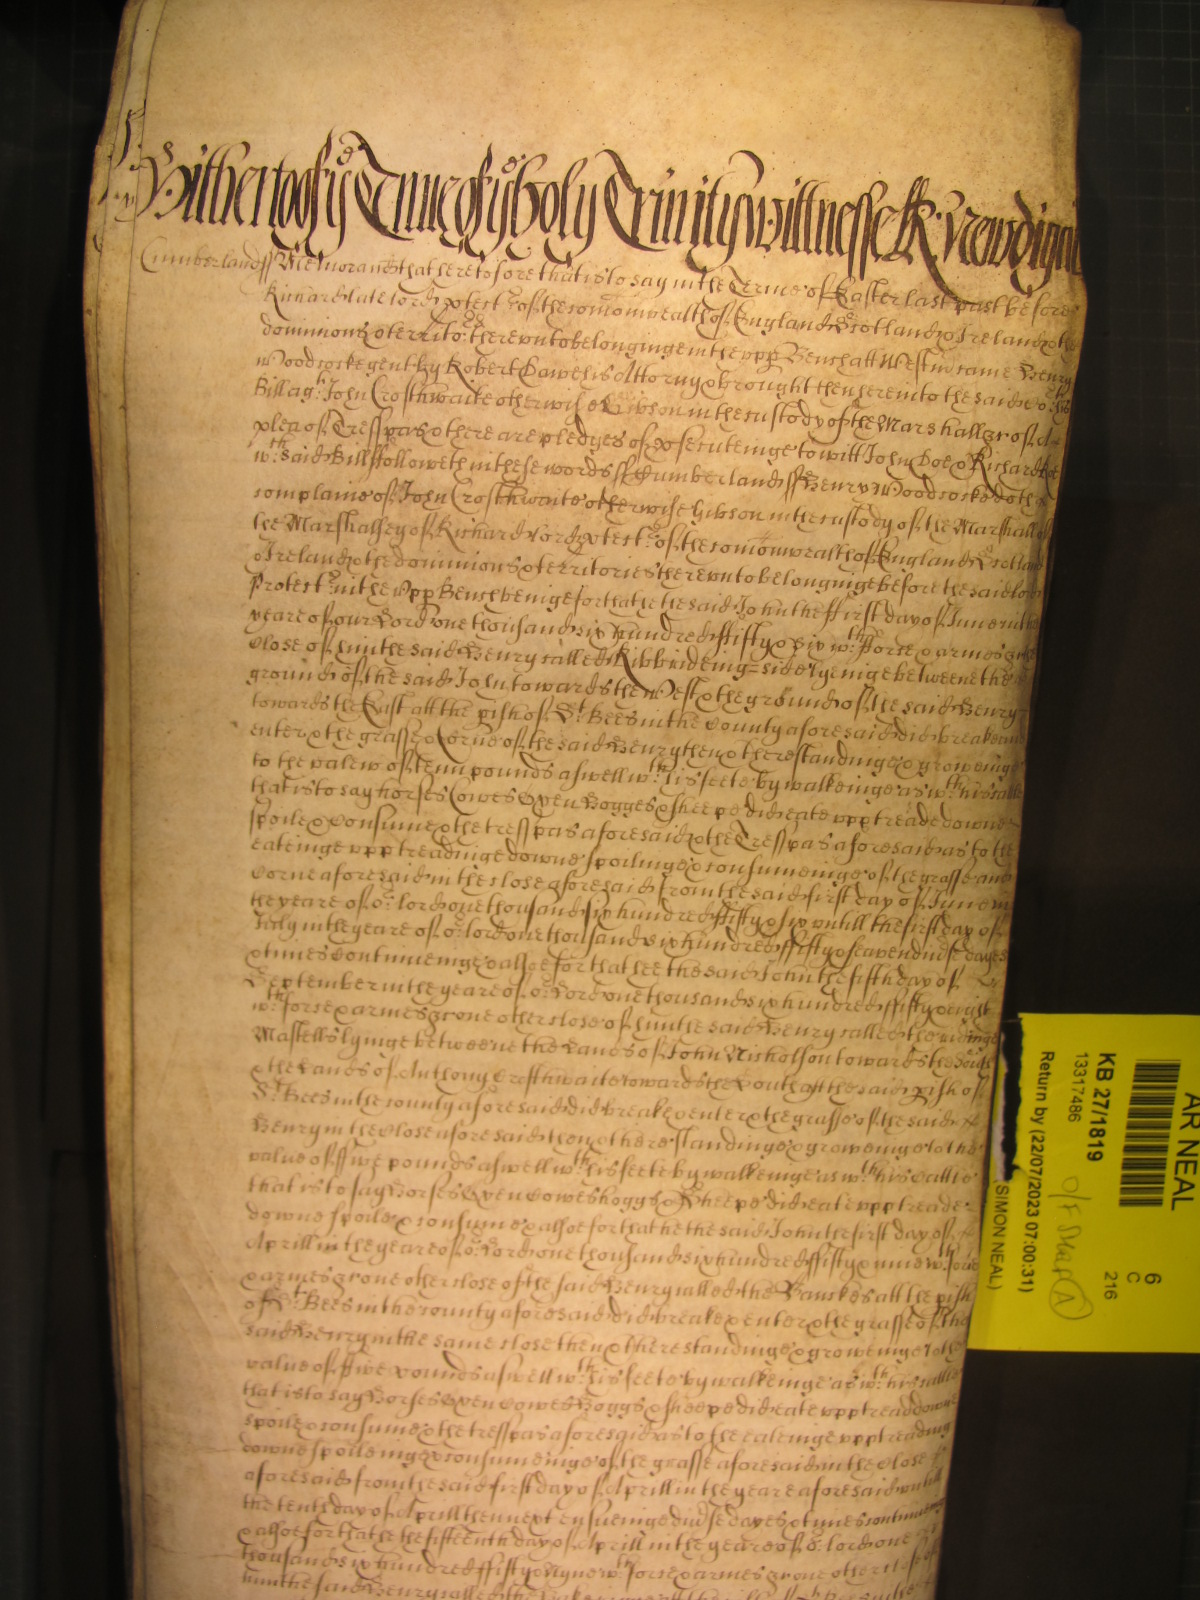 Hitherto of ye Terme of ye Holy Trinity wittnesse R: Newdigate
Cumberland ss Memorand that heretofore that is to say in the Terme of Easter last past before
Richard late lord protectr of the comonwealth of England Scotland & Ireland & the
dominions & territo: thereunto belonginge in the upp Bench att Westm came Henry
Woodcocke gent by Robert Dawe his Attorny & brought then here into the said Co:rt his
Bill agt: John Crosthwaite otherwise Gibson in the custody of the Marshall &c of a
plea of Tresspas & there are pledges of prosecuteinge to witt John Doe & Richard Roe
wth: said Bill followeth in these words ss Cumberland ss Henry Woodcocke doth
complaine of John Crosthwaite otherwise Gibson in the custody of the Marshall of
the Marshalsey of Richard Lord protectr: of the comonwealth of England Scotland
& Ireland & the dominions & territories thereunto belonginge before the said lord
Protectr: in the upp Bench beinge for that he the said John the ffirst day of June in the
yeare of our Lord one thousand six hundred ffifty & six wth: fforce & armes &c the
close of him the said Henry called Kibbrideing=side lyeinge betweene the
ground of the said John towards the West & the ground of the said Henry
towards the East att the pish of St: Bees in the County aforesaid did breake and
enter & the grasse & Corne of the said Henry then & there standinge & groweinge
to the valew of tenn pounds aswell wth: his feete by walkeinge as wth: his cattle
that is to say horses Cowes Oxen Hogges & sheepe did eate upp treade downe
spoile & consume & the tresspas aforesaid & the Tresspas aforesaid as to the
eateinge upp treadinge downe spoilinge & consumeinge of the grasse and
Corne aforesaid in the close aforesaid from the said first day of June in
the yeare of or: lord one thousand six hundred ffifty & six untill the first day of
July in the yeare of or: lord one thousand six hundred ffifty & seaven divse dayes
& times continueinge & alsoe for that hee the said John the fifth day of
September in the yeare of or: Lord one thousand six hundred ffifty & eight
wth: force & armes &c one other close of him the said Henry called the ridinge
Mastells lyinge betweene the Lands of John Nicholson towards the
& the Lands of Anthony Crosthwaite towards the South att the said pish of
St: Bees in the county aforesaid did breake & enter & the grasse of the said
Henry in the Close aforesaid then & there standinge & groweinge to the
value of ffive pounds aswell wth: his feete by walkeinge as wth: his cattle
that is to say Horses Oxen Cowes Hoggs & Sheepe did eate upp treade
downe spoile & consume & alsoe for that he the said John the first day of
Aprill in the yeare of or: Lord one thousand six hundred ffifty & nine wth: force
& armes &c one other close of the said Henry called the Banckes att the pish
of St: Bees in the county aforesaid did breake & enter & the grasse of the
said Henry in the same close then & there standinge & groweinge to the
value of ffive pounds aswell wth: his feete by walkeinge as wth: his cattle
that is to say Horses Oxen Cowes Hoggs & sheepe did eate upp tread downe
spoile & consume & the tresspas aforesaid as to the eateinge upp treading
downe spoileinge & consumeinge of the grasse aforesaid in the Close
aforesaid from the said first day of Aprill in the yeare aforesaid untill
the tenth day of Aprill then next ensueinge divse dayes & times continueinge
& alsoe for that he the fifteenth day of Aprill in the yeare of or: lord one
thousand six hundred ffifty & nyne wth: force & armes &c one other close of
him the said Henry called the
AR NEAL
6
C
216
KB 27/1819
13317486
Return by (22/07/2023 07:00:31)
(SIMON NEAL)